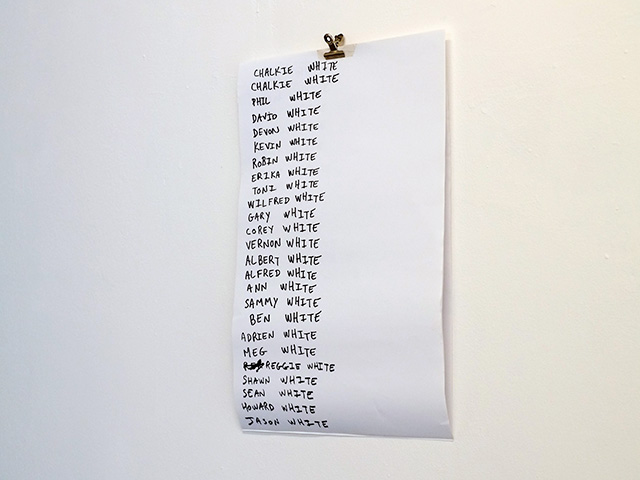 CHALKIE WHITE
CHALKIE WHITE
PHIL WHITE
DAVID WHITE
DEVON WHITE
KEVIN WHITE
ROBIN WHITE
ERIKA WHITE
TONI WHITE
WILFRED WHITE
GARY WHITE
COREY WHITE
VERNON WHITE
ALBERT WHITE
ALFRED WHITE
ANN WHITE
SAMMY WHITE
BEN WHITE
ADRIEN WHITE
MEG WHITE
REGGIE WHITE
SHAWN WHITE
SEAN WHITE
HOWARD WHITE
JASON WHITE